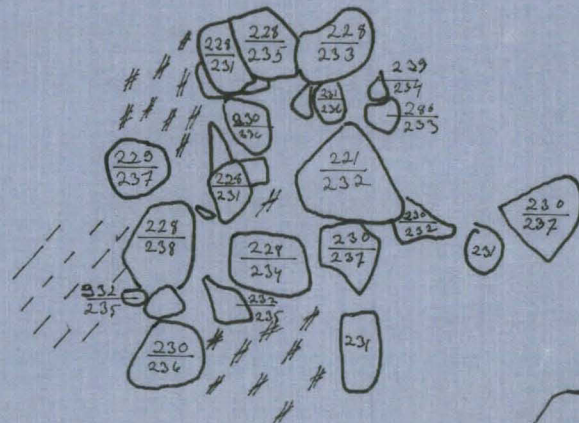 228
231
228
235
228
233
239
234
230
236
233
229
237
228
231
221
232
230
232
230
237
231
228
238
228
234
230
237
932
235
232
235
230
236
231